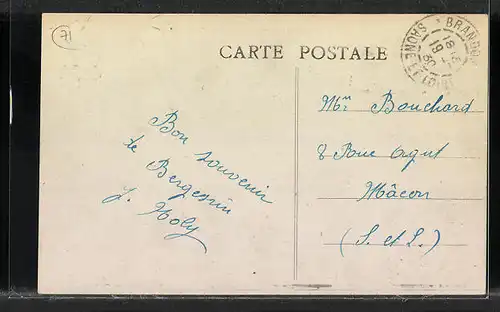 71
CARTE POSTALE
BRANDON
SAÔNE-ET-LOIRE
18
19
Bon souvenir
de
Bergesserin
J. Moly
Mr Bouchard
8 Rue Agut
Mâcon
(S. et L.)